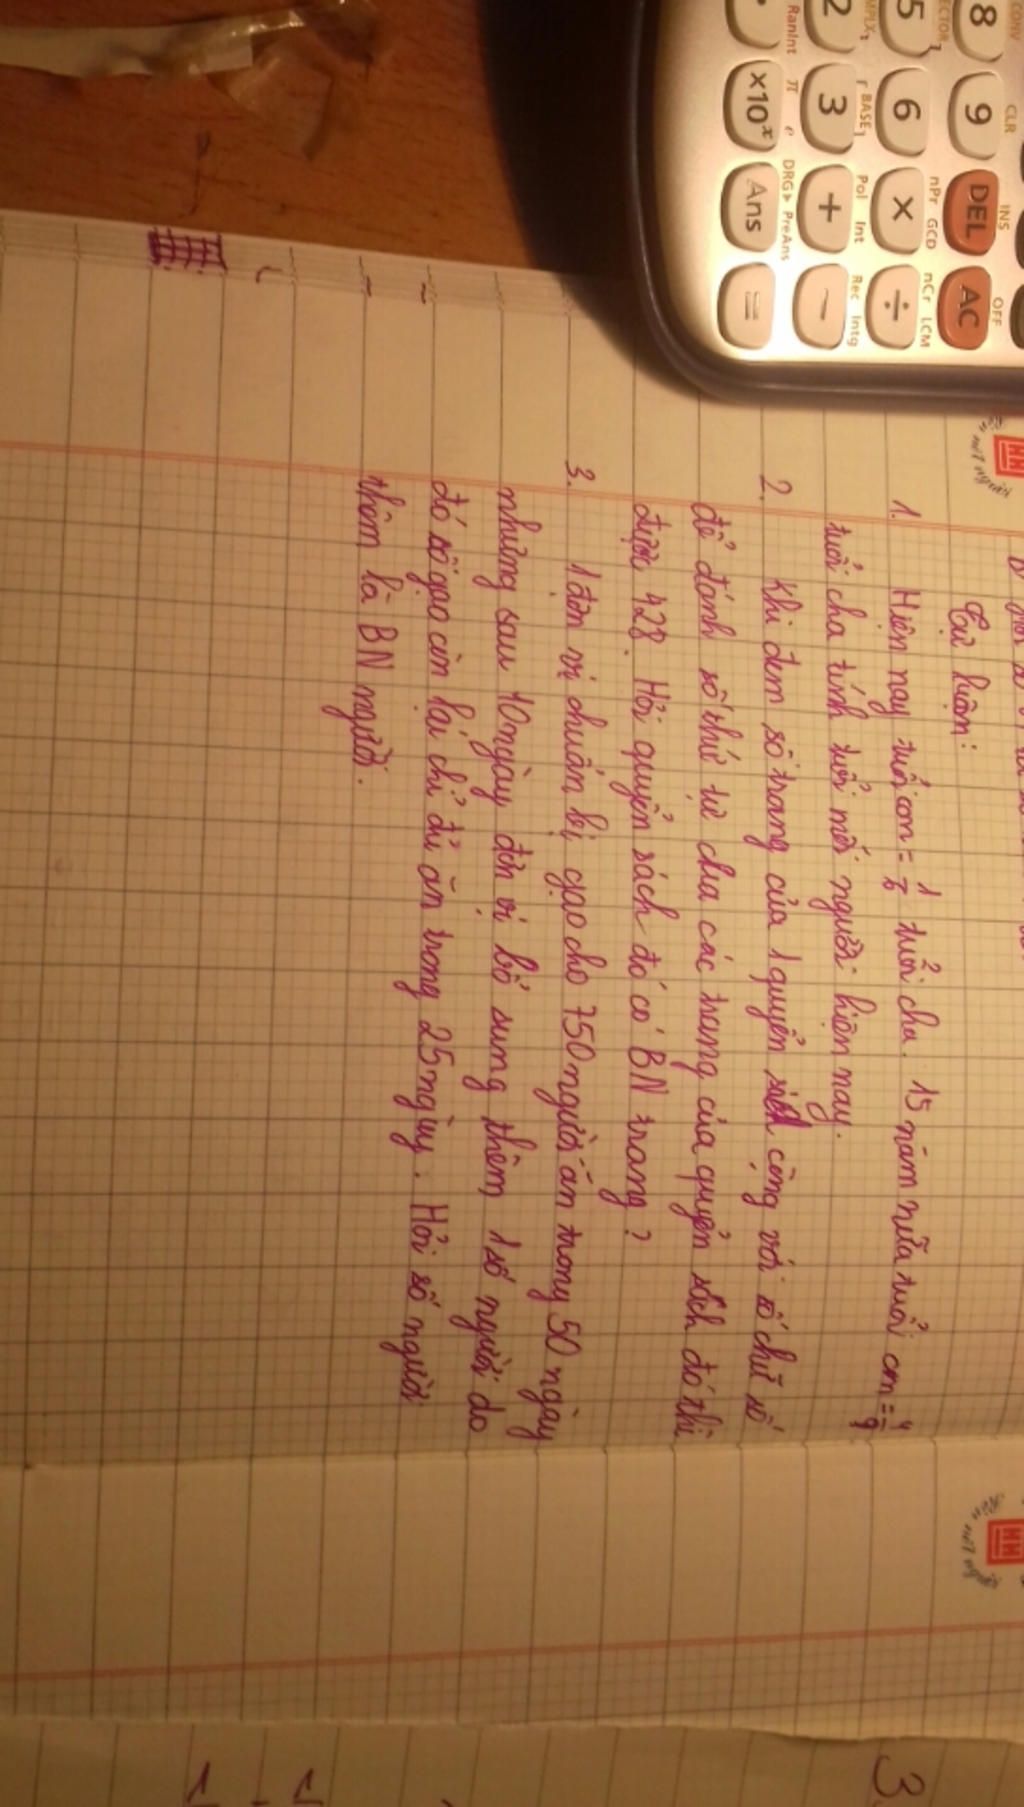 Tự luận:
1. Hiện nay tuổi con = 1/6 tuổi cha. 15 năm nữa tuổi con = 4/9
tuổi cha tính tuổi mỗi người hiện nay.
2. Khi đem số trang của 1 quyển sách cộng với số chữ số
để đánh số thứ tự cho các trang của quyển sách đó thì
được 428. Hỏi quyển sách đó có BN trang?
3. 1 đơn vị chuẩn bị gạo cho 750 người ăn trong 50 ngày
nhưng sau 10 ngày đơn vị bổ sung thêm 1 số người do
đó số gạo còn lại chỉ đủ ăn trong 25 ngày. Hỏi số người
thêm là BN người.
CONV CLR INS OFF
8 9 DEL AC
VECTOR nPr GCD nCr LCM
5 6 × ÷
CMPLX BASE Pol Int Rec Intg
2 3 + −
RanInt π e DRG▶ PreAns
×10ˣ Ans =
HH
HH
3